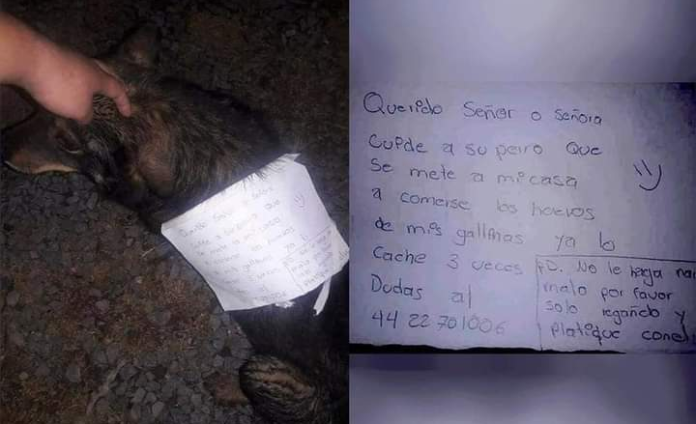 Querido Señor o Señora
Cuide a su perro que
se mete a mi casa
a comerse los huevos
de mis gallinas ya lo
Cache 3 veces
Dudas al
44 22 701006
PD. No le haga na
malo por favor
solo regañelo y
platique con el